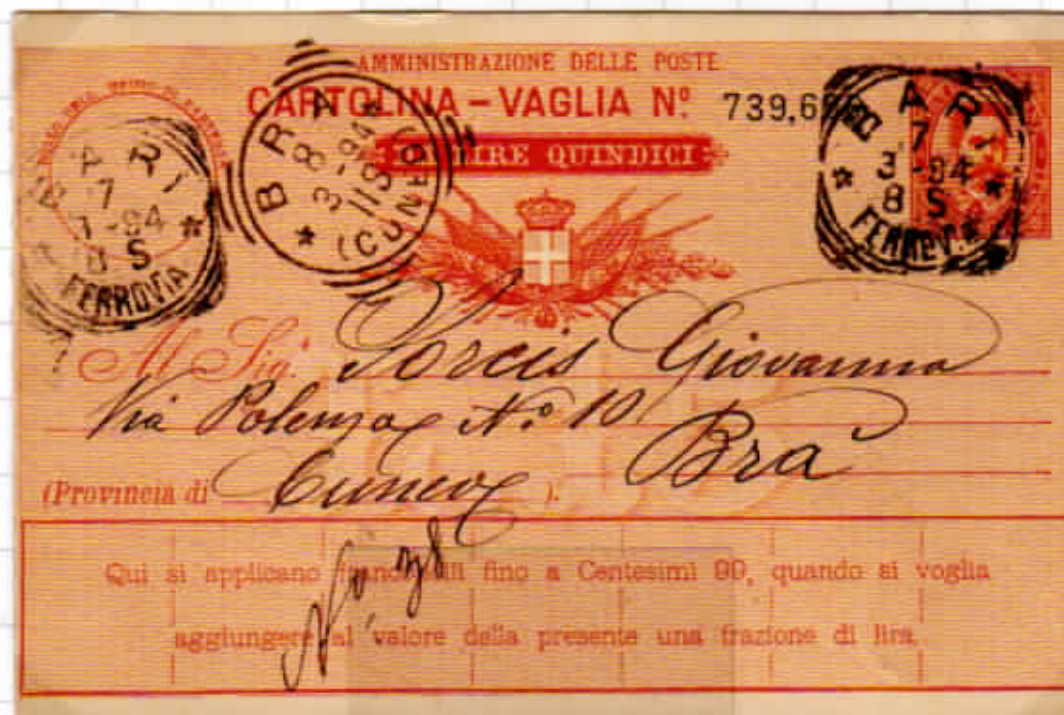 AMMINISTRAZIONE DELLE POSTE
CARTOLINA-VAGLIA Nº 739,6
LIRE QUINDICI
BARI
7
3-94
8 S
FERROVIA
BRA
8
3-94
11 S
(CUNEO)
BARI
7
3-94
8 S
FERROV.
Al Sig.
Giovanna
Via Polenza Nº 10
Bra
(Provincia di Cuneo ).
Nº 38
Qui si applicano francobolli fino a Centesimi 99, quando si voglia
aggiungere al valore della presente una frazione di lira.